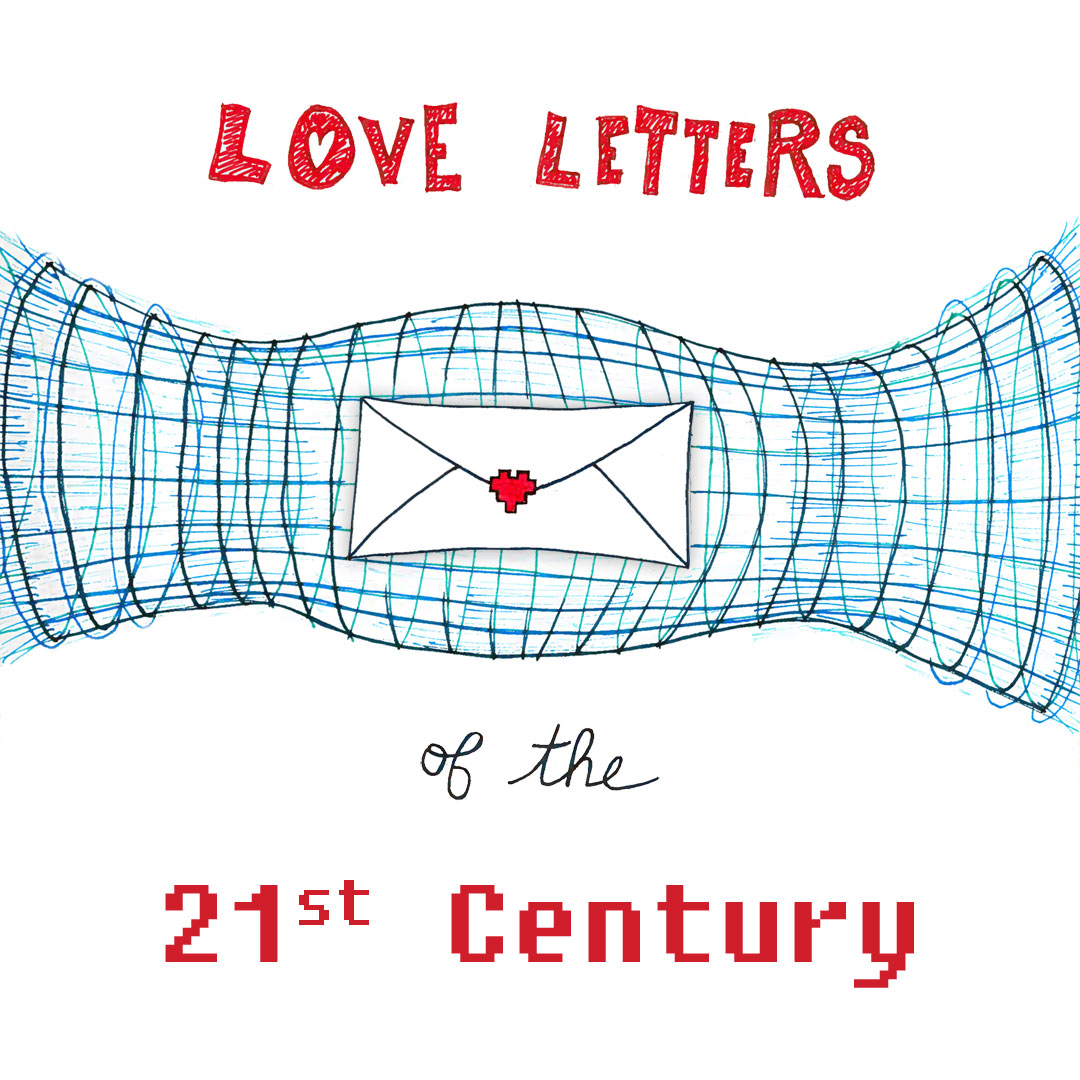 LOVE LETTERS
of the
21st Century